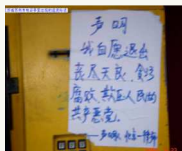 声明
我自愿退出
丧尽天良、贪污
腐败、欺压人民的
共产恶党。